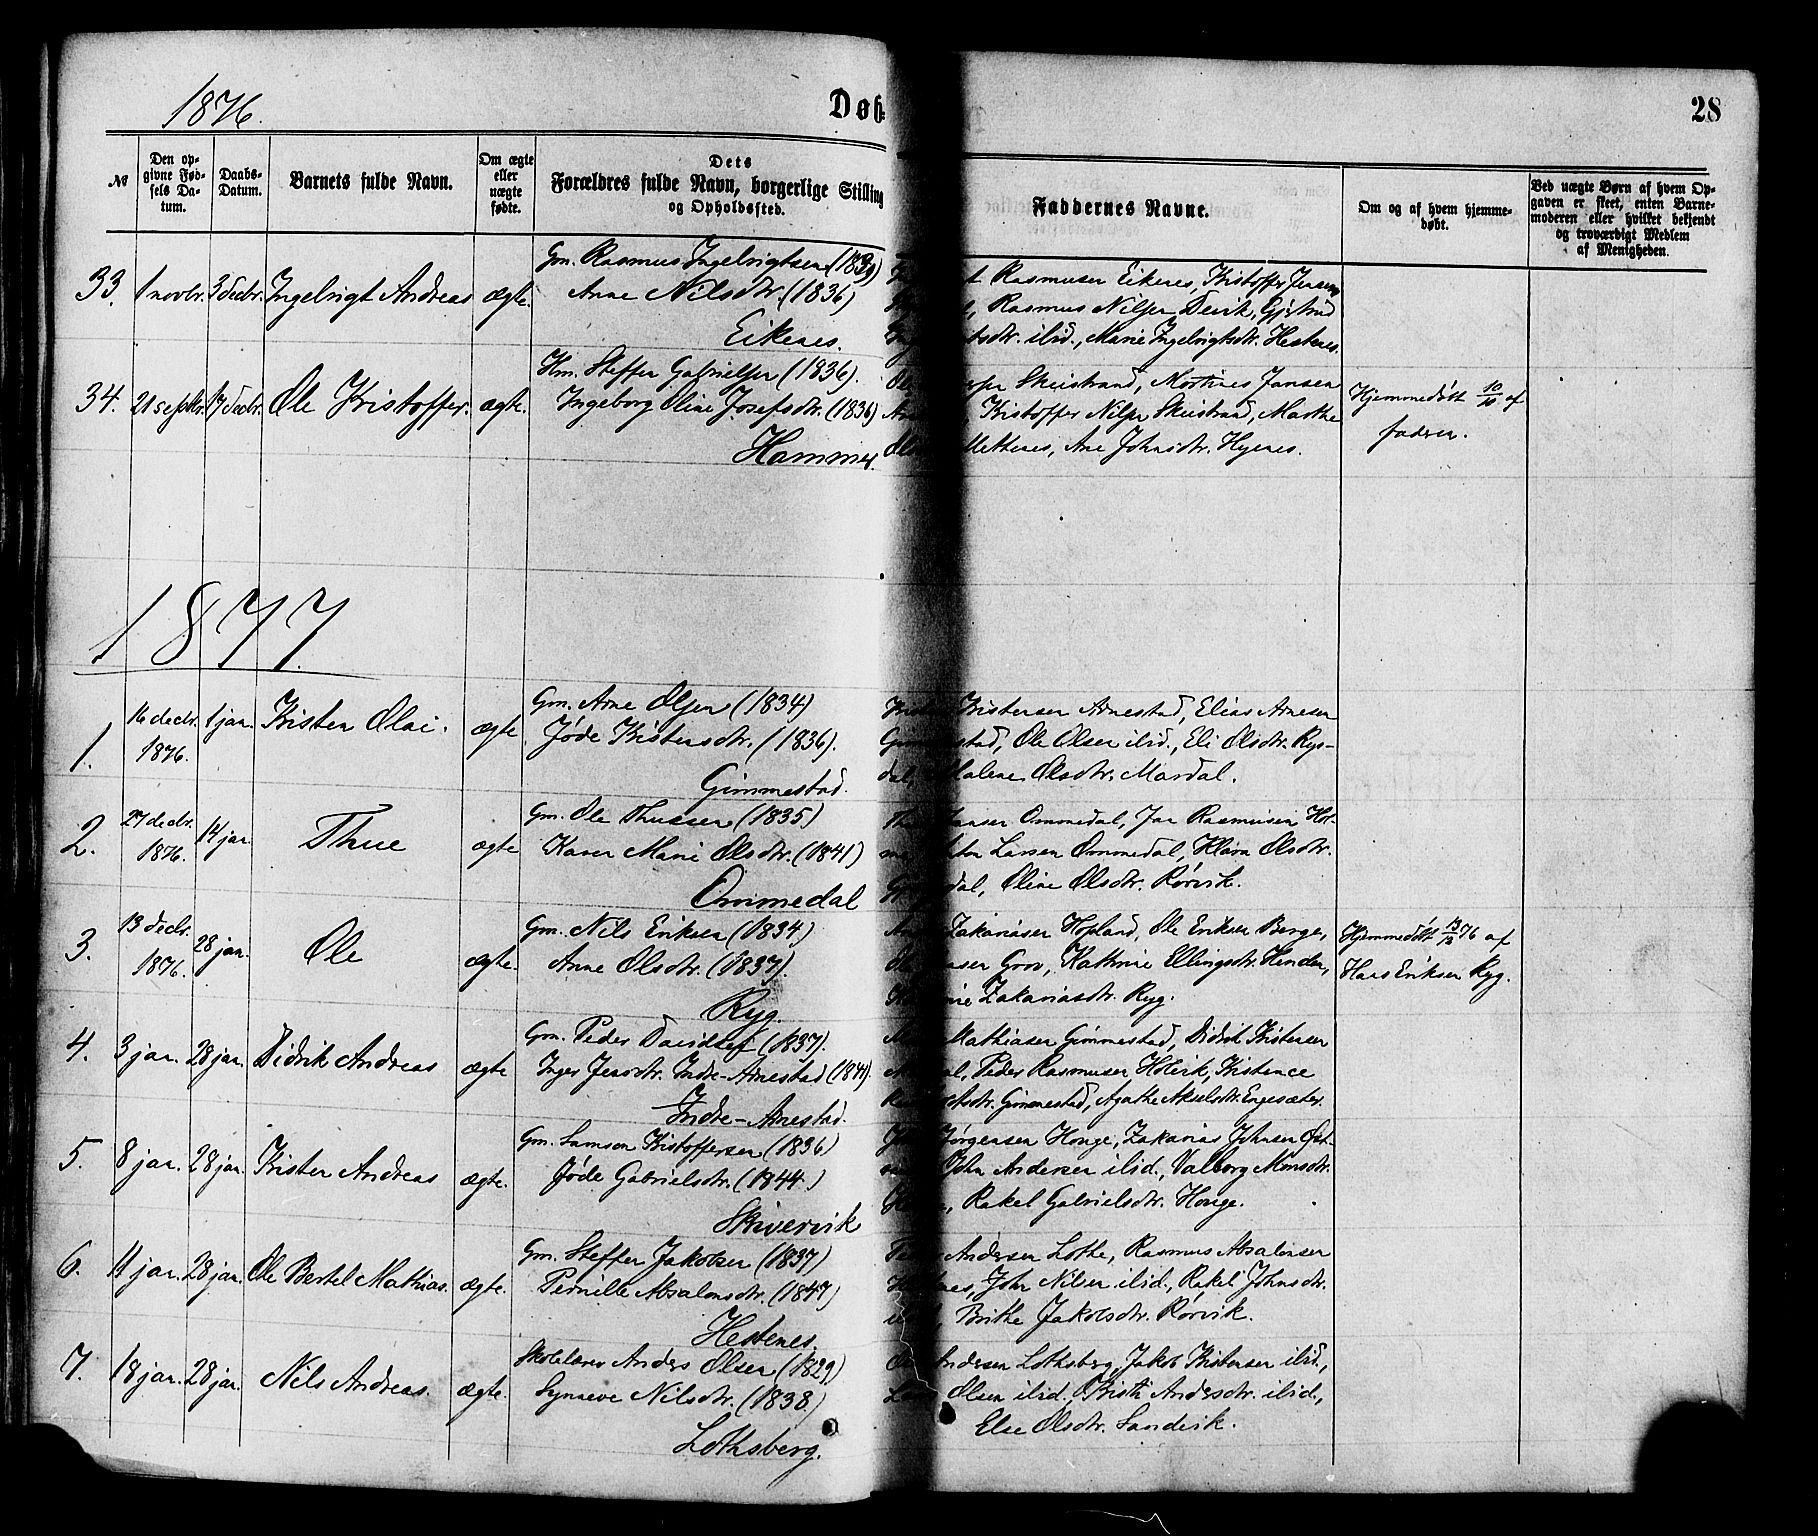 1876.
Døb-
28
№
Den op-
givne Fød-
sels Da-
tum.
Daabs-
Datum.
Barnets fulde Navn.
Om ægte
eller
uægte
fødte.
Dets
Forældres fulde Navn, borgerlige Stilling
og Opholdssted.
Faddernes Navne.
Om og af hvem hjemme-
døbt.
Ved uægte Børn af hvem Op-
gaven er skeet, enten Barne-
moderen eller hvilket bekjendt
og troværdigt Medlem
af Menigheden.
33. 1 novbr. 3 decbr. Ingebrigt Andreas ægte.
Gm. Rasmus Ingebrigtsen (1839)
Anne Nilsdtr. (1836)
Eikenes.
Rasmusen Eikenes, Kristoffer Jensen
Rasmus Nilsen Devik, Gjertrud
ilid., Marie Ingebrigtsdtr. Hestenes.
34. 21 septbr. 17 decbr. Ole Kristoffer. ægte.
Hm. Steffen Gabrielsen (1836).
Ingeborg Oline Josefsdtr. (1836)
Hammer.
Skeistrand, Mortines Jansen
Kristoffer Nilsen Skeistrand, Marthe
Metteres, Ane Johnsdtr. Hyenes.
Hjemmedøbt 10/10 af
fadren.
1877.
1. 16 decbr. 1876. 1 jan. Kristen Olai. ægte
Gm. Arne Olsen (1834)
Jøde Kristensdtr. (1836).
Gimmestad.
Kristensen Arnestad, Elias Arnesen
Gimmestad, Ole Olsen ilid., Eli Olsdtr. Rys-
dal, Malene Olsdtr. Mardal.
2. 27 decbr. 1876. 14 jan. Thue ægte
Gm. Ole Thuesen (1835)
Karen Marie Olsdtr. (1841)
Ommedal
Jansen Ommedal, Jan Rasmusen Hol-
Larsen Ommedal, Klara Olsdtr.
Oline Olsdtr. Rørvik.
3. 13 decbr. 1876. 28 jan. Ole ægte.
Gm. Nils Eriksen (1834)
Anne Olsdtr. (1837).
Ryg.
Zakariasen Hopland, Ole Eriksen Berge,
Grov, Kathrine Ellingsdtr. Henden,
Zakariasdtr. Ryg.
Hjemmedøbt 13/12 76 af
Hans Eriksen Ryg.
4. 3 jan. 28 jan. Didrik Andreas ægte
Gm. Peder Davidsen (1837).
Inger Jensdtr. Indre-Arnestad (1841).
Indre-Arnestad.
Mathiasen Gimmestad, Didrik Kristensen
Peder Rasmusen Holvik, Kristence
Gimmestad, Agathe Akselsdtr. Engesæter.
5. 8 jan. 28 jan. Kristen Andreas ægte.
Gm. Samson Kristoffersen (1836)
Jøde Gabrielsdtr. (1844.)
Skivervik
Jørgensen Honge, Zakarias Johnsen Øst-
John Andersen ilid., Valborg Monsdtr.
Rakel Gabrielsdtr. Honge.
6. 11 jan. 28 jan. Ole Bertel Mathias. ægte.
Gm. Steffen Jakobsen (1837)
Pernille Absalonsdtr. (1847)
Hestenes.
Andersen Lothe, Rasmus Absalonsen
John Nilsen ilid., Rakel Johnsdtr.
Brithe Jakobsdtr. Rørvik.
7. 18 jan. 28 jan. Nils Andreas. ægte.
Skolelærer Anders Olsen (1829)
Synneve Nilsdtr. (1838)
Lothsberg.
Andersen Lothsberg, Jakob Kristensen ilid.,
Olsen ilid., Kristi Andersdtr. ilid.,
Else Olsdtr. Sandvik.